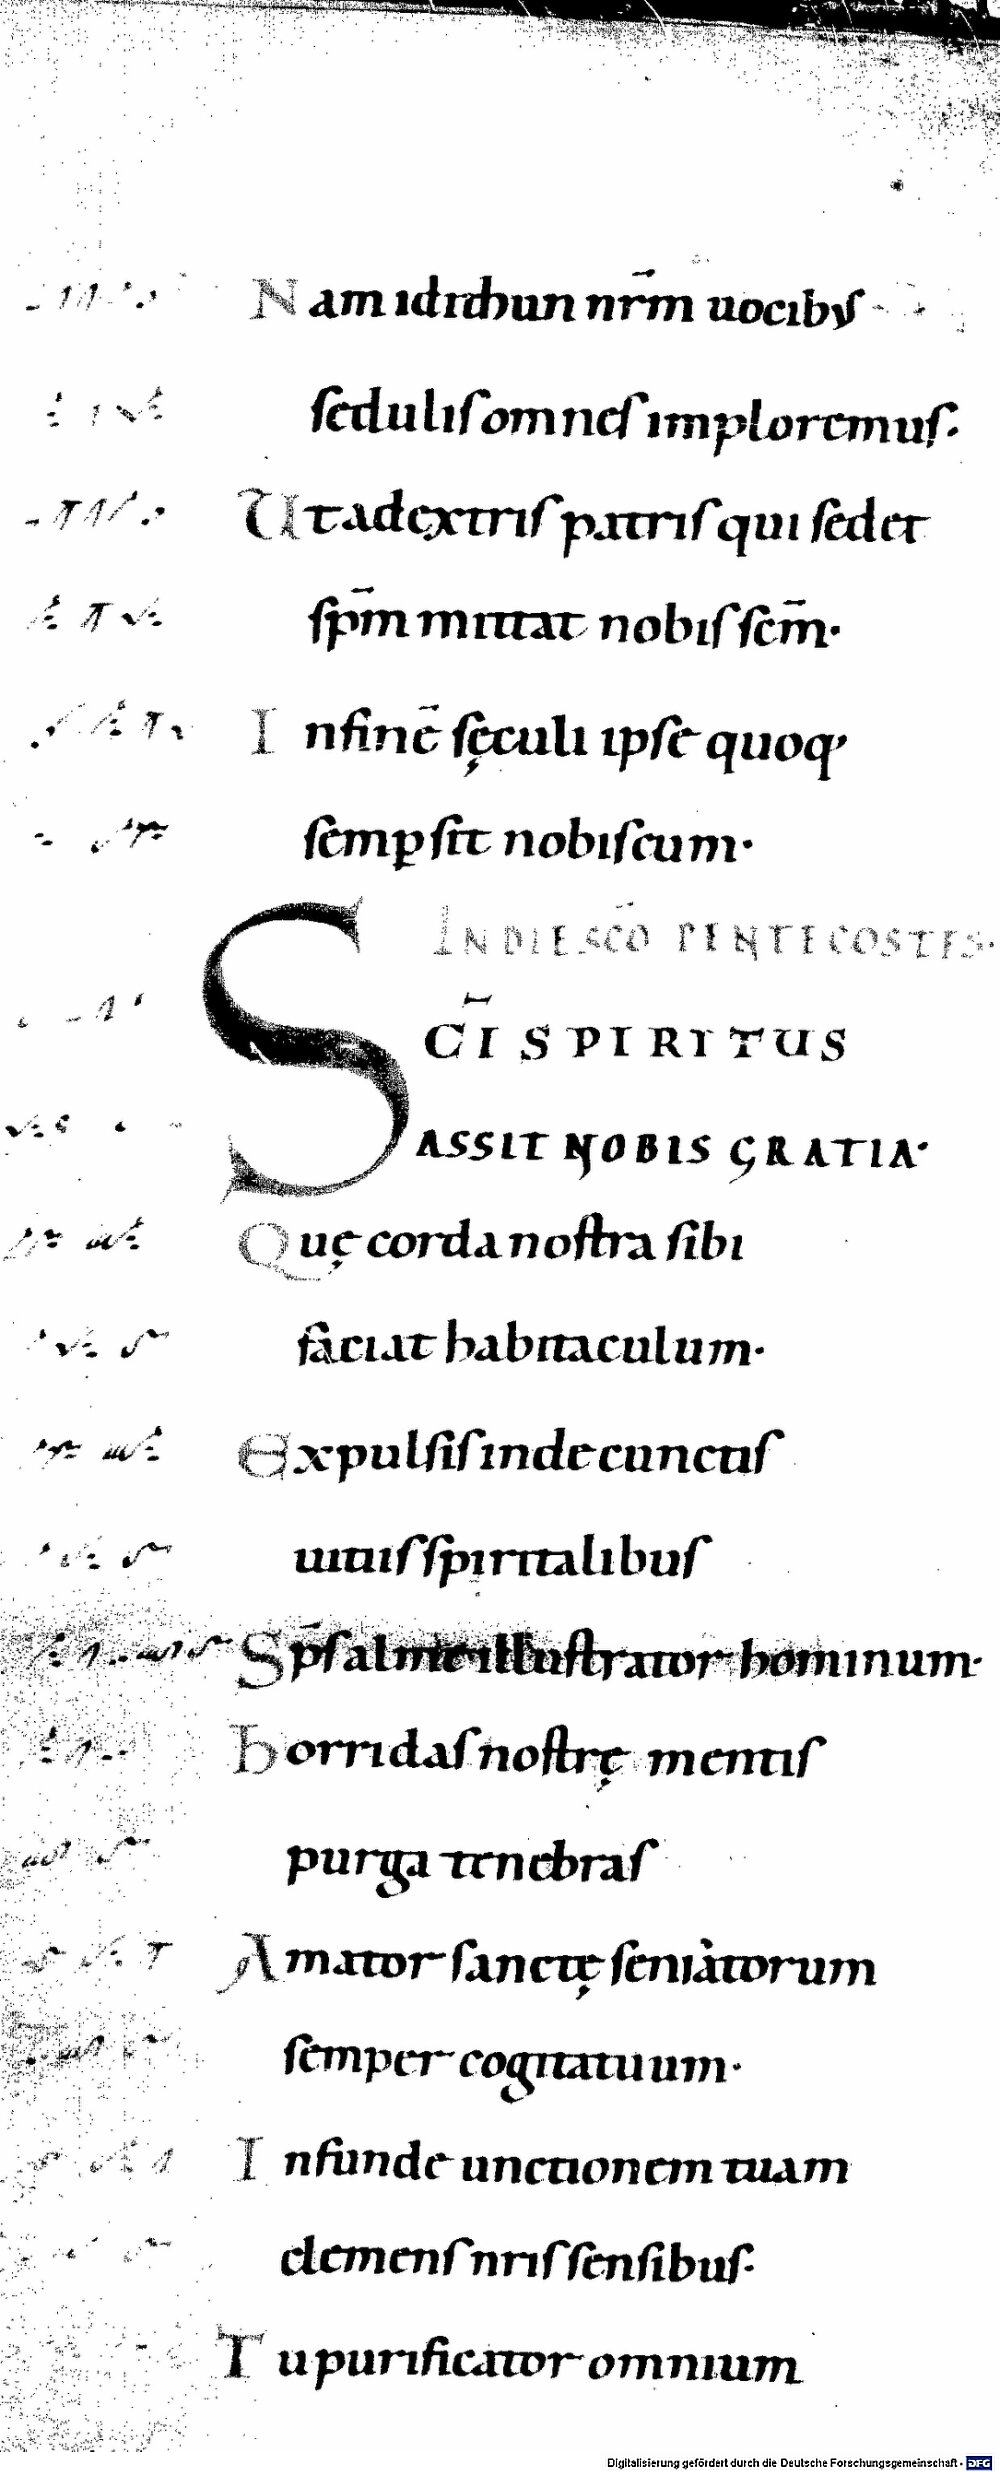 Nam idcirco nunc nr̄m uocibus
sedulis omnes imploremus·
Ut a dextris patris qui sedet
sp̄m mittat nobis scm̄·
In finē sęculi ipse quoq;
semp sit nobiscum·
IN DIE SCŌ PENTECOSTES·
SC̄I SPIRITUS
ASSIT NOBIS GRATIA·
Quę corda nostra sibi
faciat habitaculum·
Expulsis inde cunctis
uitiis spiritalibus
Sp̄s alme illustrator hominum·
Horridas nostrę mentis
purga tenebras
Amator sanctę
semper cogitatuum·
Infunde unctionem tuam
clemens nris sensibus·
Tu purificator omnium
Digitalisierung gefördert durch die Deutsche Forschungsgemeinschaft - DFG